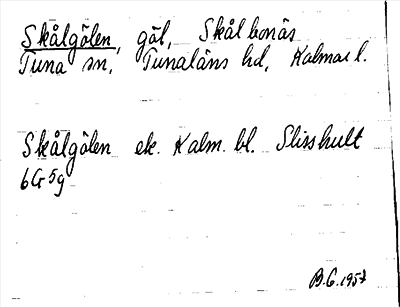 Skålgölen, göl, Skålbonäs
Tuna sn, Tunaläns hd, Kalmar l.
Skålgölen ek. Kalm. bl. Slisshult
6G5g
B.G. 1957